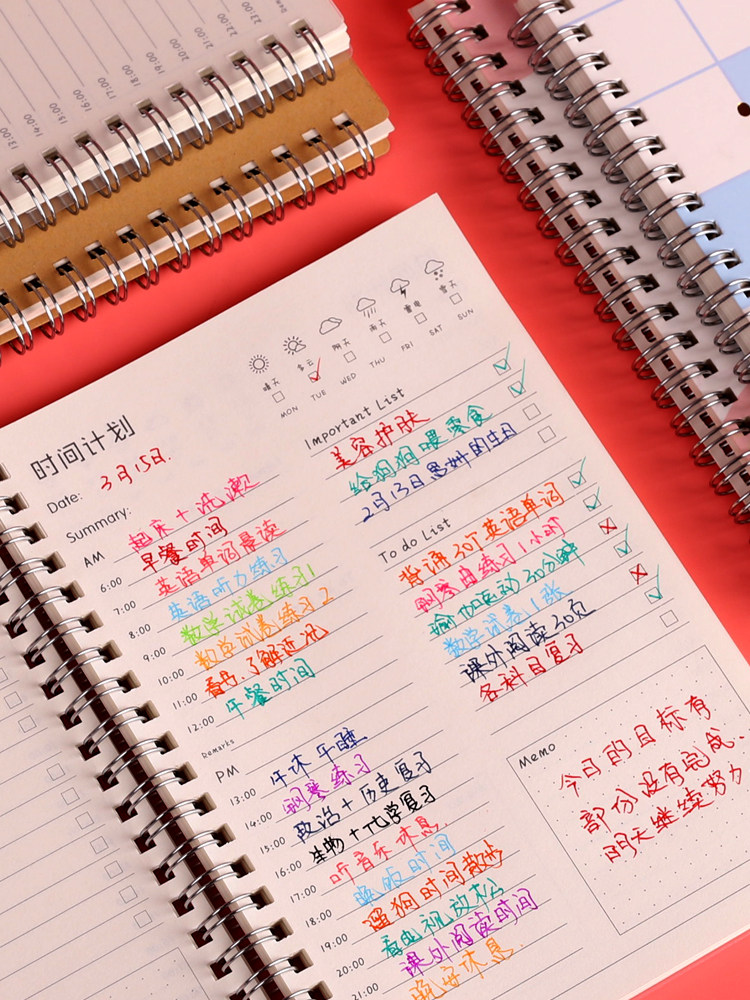 13:00
14:00
15:00
16:00
17:00
18:00
19:00
20:00
21:00
22:00
23:00
时间计划
Date: 3月15日.
Summary:
晴天 多云 阴天 雨天 雷电 雪天
MON TUE WED THU FRI SAT SUN
AM
起床+洗漱
早餐时间
6:00 英语单词晨读
7:00 英语听力练习
8:00 数学试卷练习1
9:00 数学试卷练习2
10:00 看书.了解近况
11:00 午餐时间
12:00
Remarks
PM 午休午睡
13:00 钢琴练习
14:00 政治+历史复习
15:00 生物+化学复习
16:00 听音乐休息
17:00 晚饭时间
18:00 遛狗时间散步
19:00 看电视放松
20:00 课外阅读时间
21:00 晚安休息.
Important List
美容护肤
给狗狗喂零食
2月13日 的生日
To do List
背诵30个英语单词
钢琴曲练习1小时
瑜伽运动30分钟
数学试卷1张
课外阅读30页
各科目复习
Memo
今日的目标有
部份没有完成.
明天继续努力